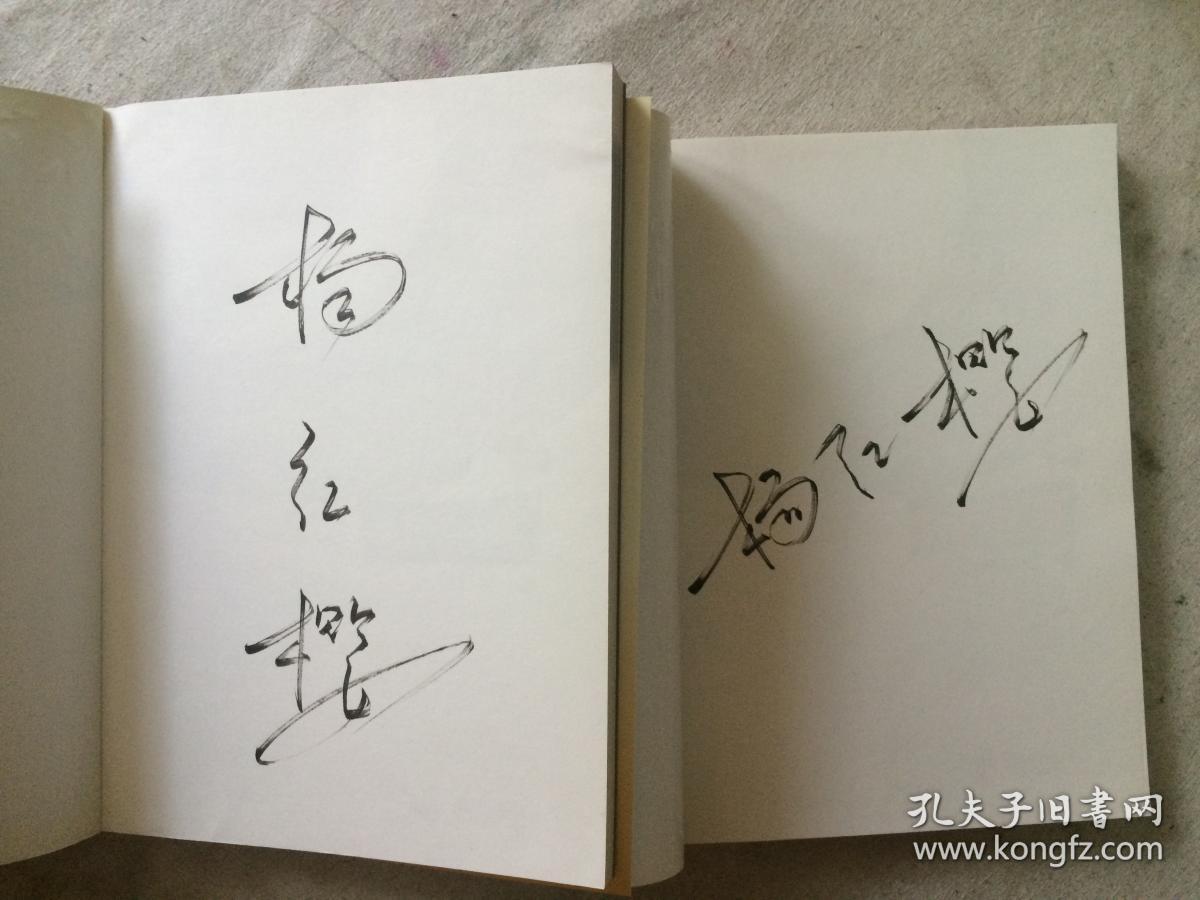 杨
红
樱
杨红樱
孔夫子旧書网
www.kongfz.com